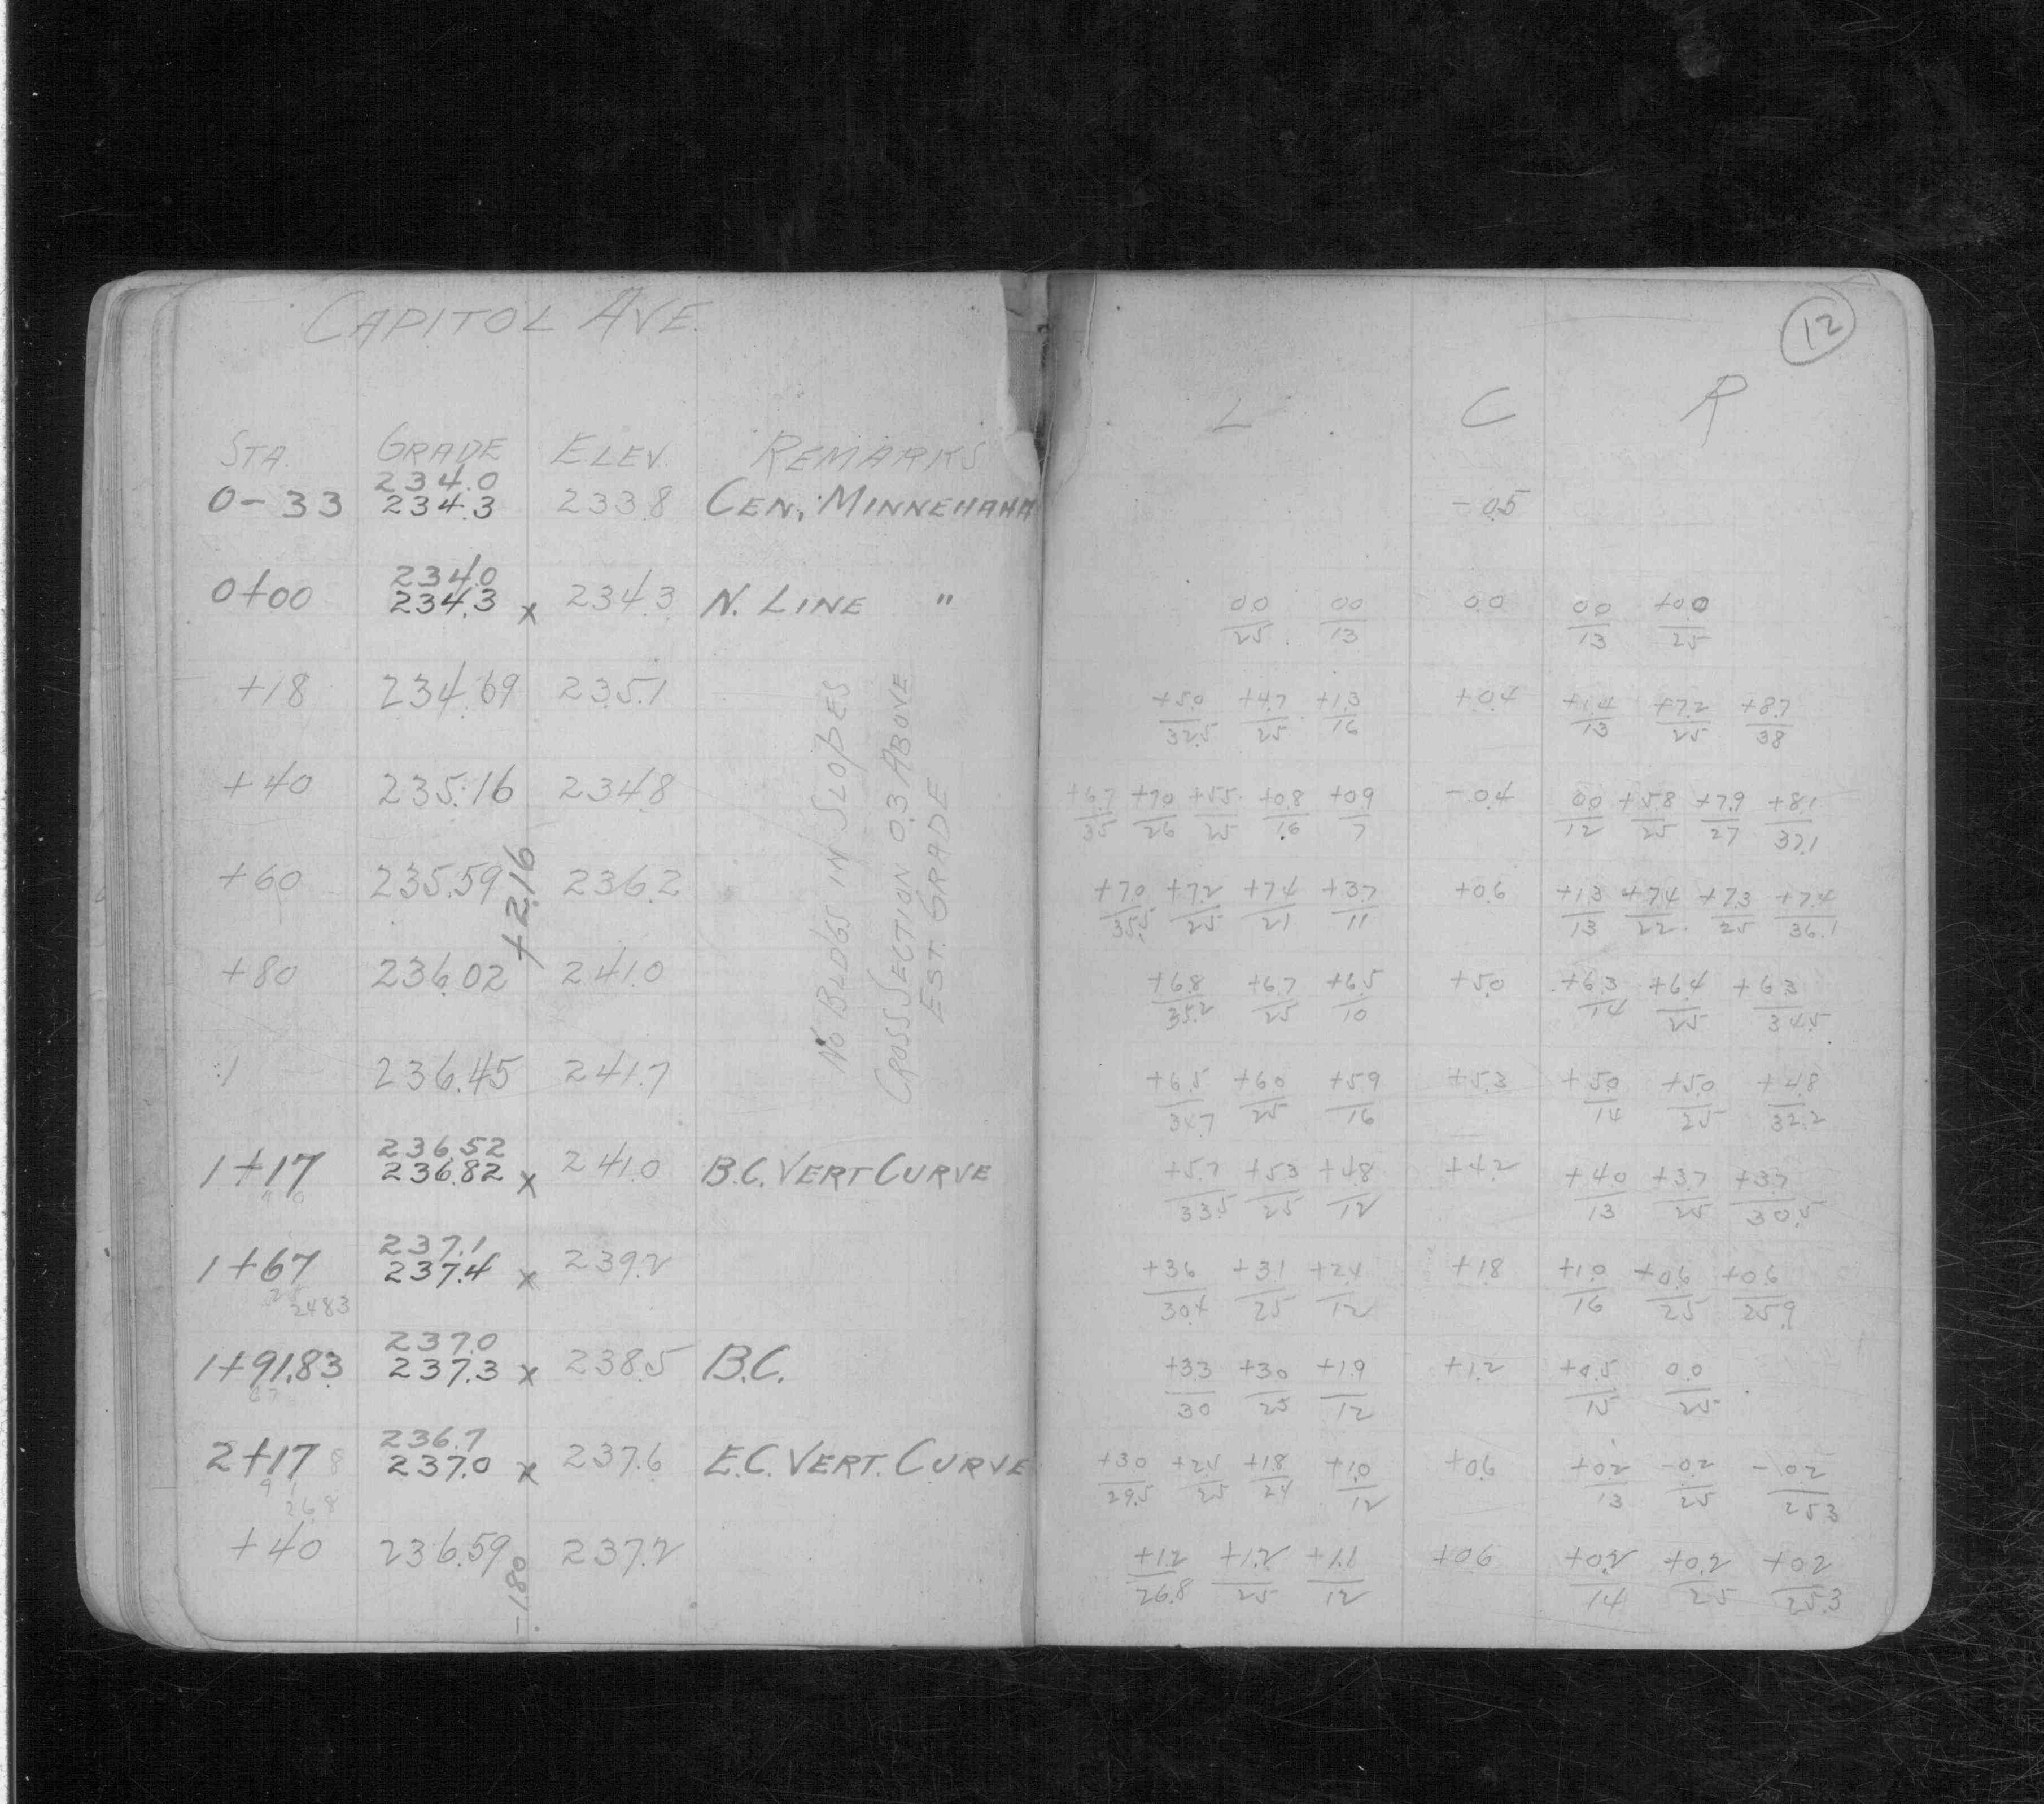 CAPITOL AVE.
12
L C R
STA. GRADE ELEV. REMARKS
234.0
0-33 234.3 233.8 CEN. MINNEHAHA -0.5
234.0
0+00 234.3 x 234.3 N. LINE " 00/25 00/13 0.0 00/13 +0.0/25
+18 234.69 235.1 +5.0/32.5 +4.7/25 +1.3/16 +0.4 +1.4/13 +7.2/25 +8.7/38
+40 235.16 234.8 +6.7/35 +7.0/26 +5.5/25 +0.8/16 +0.9/7 -0.4 00/12 +5.8/25 +7.9/27 +8.1/37.1
+60 235.59 236.2 +7.0/35.5 +7.2/25 +7.4/21 +3.7/11 +0.6 +1.3/13 +7.4/22 +7.3/25 +7.4/36.1
+2.16
+80 236.02 241.0 +6.8/35.2 +6.7/25 +6.5/10 +5.0 +6.3/14 +6.4/25 +6.3/34.5
1 236.45 241.7 +6.5/34.7 +6.0/25 +5.9/16 +5.3 +5.0/14 +5.0/25 +4.8/32.2
NO BLDGS IN SLOPES
CROSS SECTION 0.3 ABOVE
EST. GRADE
236.52
1+17 236.82 x 241.0 B.C. VERT CURVE +5.7/33.5 +5.3/25 +4.8/12 +4.2 +4.0/13 +3.7/25 +3.7/30.5
237.1
1+67 237.4 x 239.2 +3.6/30.4 +3.1/25 +2.4/12 +1.8 +1.0/16 +0.6/25 +0.6/25.9
2483
237.0
1+91.83 237.3 x 238.5 B.C. +3.3/30 +3.0/25 +1.9/12 +1.2 +0.5/15 0.0/25
67
236.7
2+17 237.0 x 237.6 E.C. VERT. CURVE +3.0/29.5 +2.5/25 +1.8/24 +1.0/12 +0.6 +0.2/13 -0.2/25 -0.2/25.3
268
+40 236.59 237.2 +1.2/26.8 +1.2/25 +1.1/12 +0.6 +0.2/14 +0.2/25 +0.2/25.3
-1.80